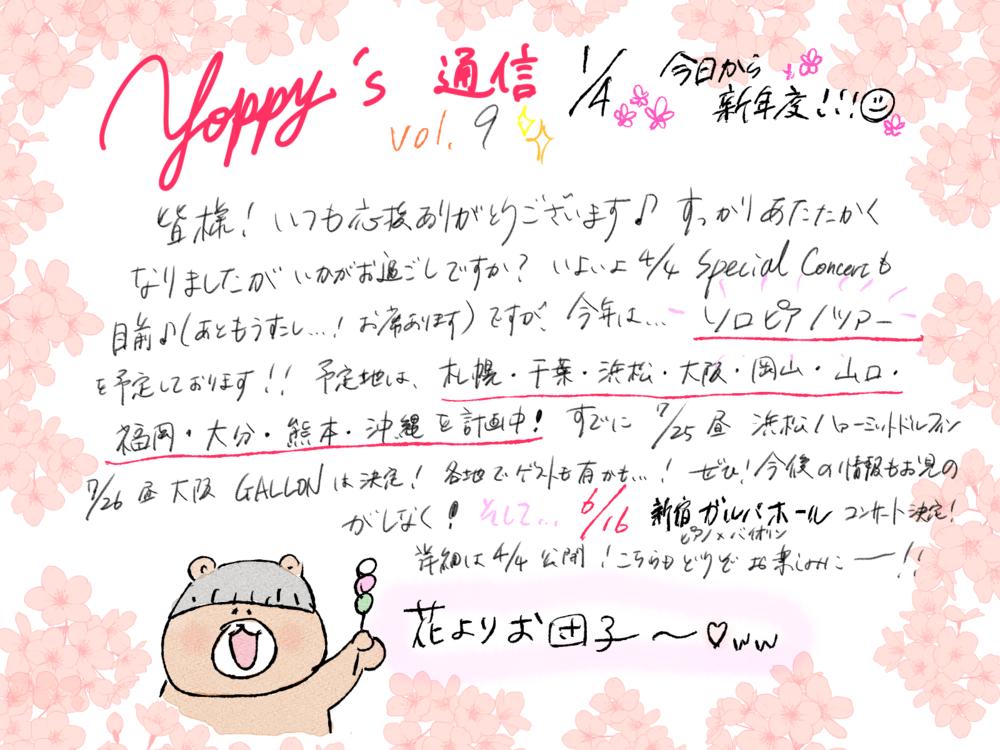 Yoppy's 通信 1/4 今日から
vol. 9 新年度!!!
皆様! いつも応援ありがとうございます♪ すっかりあたたかく
なりましたが いかがお過ごしですか? いよいよ 4/4 Special Concertも
目前♪(あともうすこし...! お席あります) ですが、今年は... ソロピアノツアー
を予定しております!! 予定地は、札幌・千葉・浜松・大阪・岡山・山口・
福岡・大分・熊本・沖縄を計画中! すでに 7/25 昼 浜松ハァーミットドルフィン
7/26 昼 大阪 GALLON は決定! 各地でゲストも有かも...! ぜひ!今後の情報もお見の
がしなく! そして... 6/16 新宿ガルバホール コンサート決定!
ピアノ×バイオリン
詳細は 4/4 公開!こちらもどうぞお楽しみにー!!
花よりお団子〜♡ww